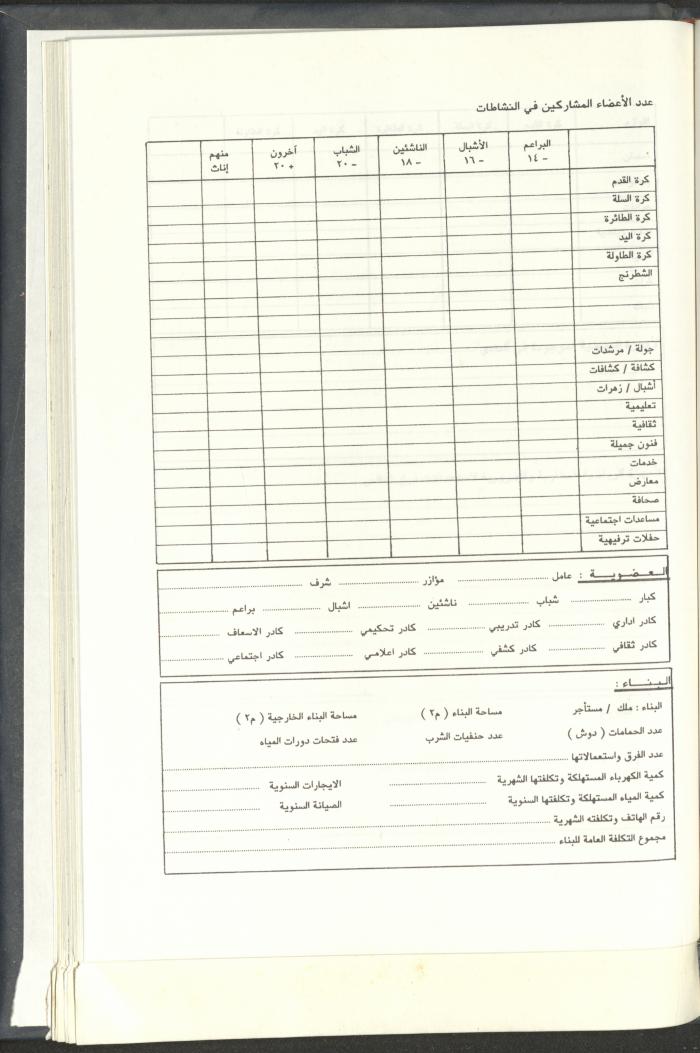 عدد الأعضاء المشاركين في النشاطات
البراعم الأشبال الناشئين الشباب آخرون منهم
- ١٤ - ١٦ - ١٨ - ٢٠ + ٢٠ إناث
كرة القدم
كرة السلة
كرة الطائرة
كرة اليد
كرة الطاولة
الشطرنج
جولة / مرشدات
كشافة / كشافات
أشبال / زهرات
تعليمية
ثقافية
فنون جميلة
خدمات
معارض
صحافة
مساعدات اجتماعية
حفلات ترفيهية
العضوية : عامل مؤازر شرف
كبار شباب ناشئين اشبال براعم
كادر اداري كادر تدريبي كادر تحكيمي كادر الاسعاف
كادر ثقافي كادر كشفي كادر اعلامي كادر اجتماعي
البناء :
البناء : ملك / مستأجر مساحة البناء ( م٢ ) مساحة البناء الخارجية ( م٢ )
عدد الحمامات ( دوش ) عدد حنفيات الشرب عدد فتحات دورات المياه
عدد الفرق واستعمالاتها
كمية الكهرباء المستهلكة وتكلفتها الشهرية الايجارات السنوية
كمية المياه المستهلكة وتكلفتها السنوية الصيانة السنوية
رقم الهاتف وتكلفته الشهرية
مجموع التكلفة العامة للبناء